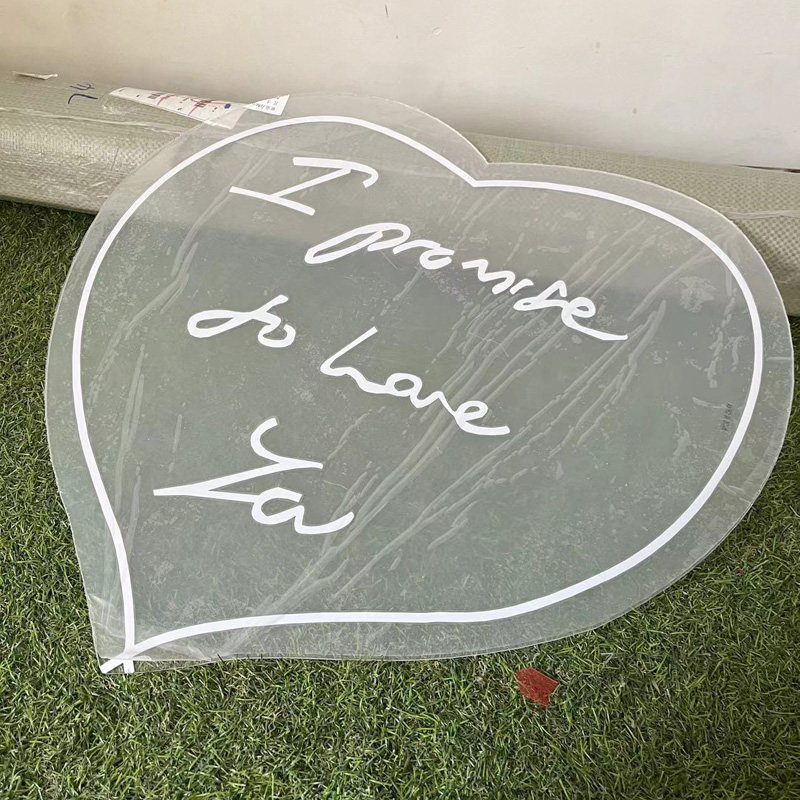 I promise
to have
Ya